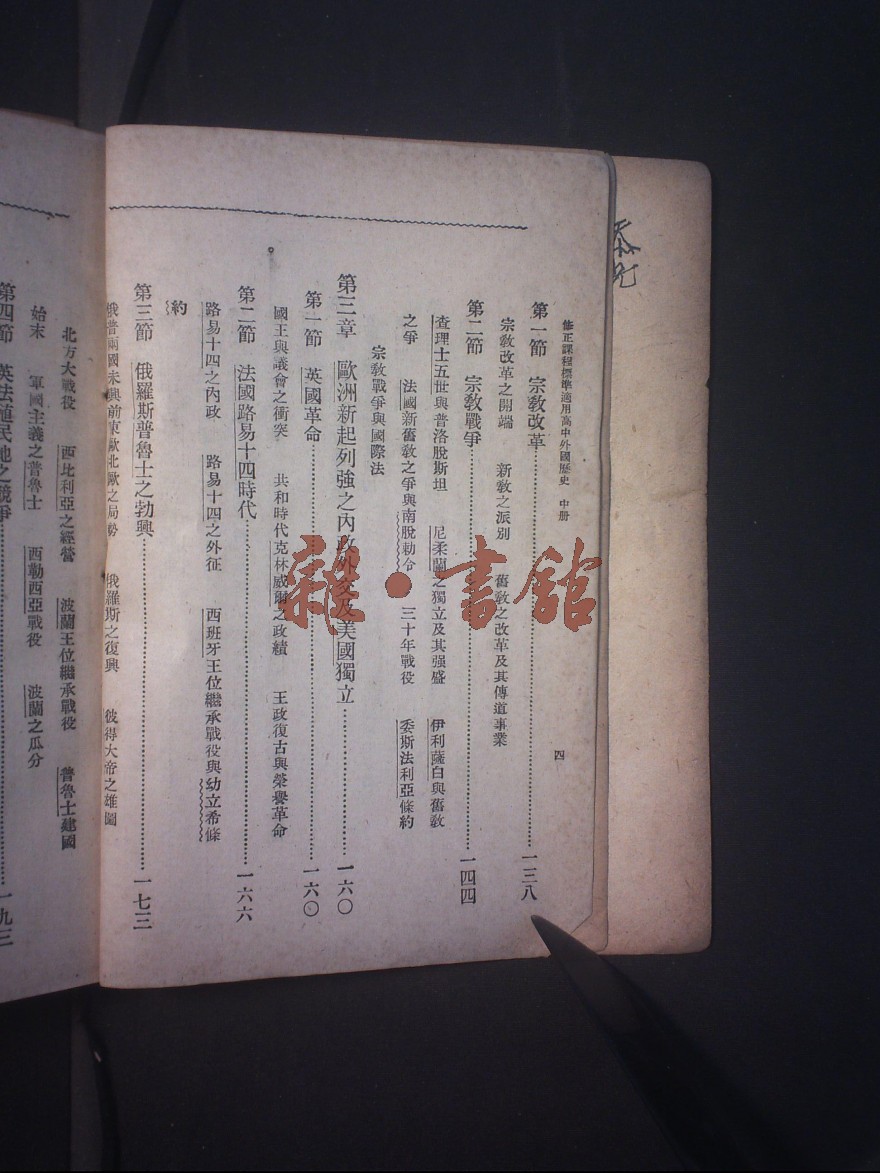 修正課程標準適用高中外國歷史 中册
四
第一節 宗教改革……一三八
宗教改革之開端 新教之派別 舊教之改革及其傳道事業
第二節 宗教戰爭……一四四
查理士五世與普洛脫斯坦 尼柔蘭之獨立及其强盛 伊利薩白與舊教
之爭 法國新舊教之爭與南脫勅令 三十年戰役 委斯法利亞條約
宗教戰爭與國際法
第三章 歐洲新起列強之內政外交及美國獨立……一六〇
第一節 英國革命……一六〇
國王與議會之衝突 共和時代克林威爾之政績 王政復古與榮譽革命
第二節 法國路易十四時代……一六六
路易十四之內政 路易十四之外征 西班牙王位繼承戰役與幼立希條
約
第三節 俄羅斯普魯士之勃興……一七三
俄普兩國未興前東歐北歐之局勢 俄羅斯之復興 彼得大帝之雄圖
北方大戰役 西比利亞之經營 波蘭王位繼承戰役 普魯士建國
始末 軍國主義之普魯士 西勒西亞戰役 波蘭之瓜分
第四節 英法殖民地之競爭……一九三
雜·書館